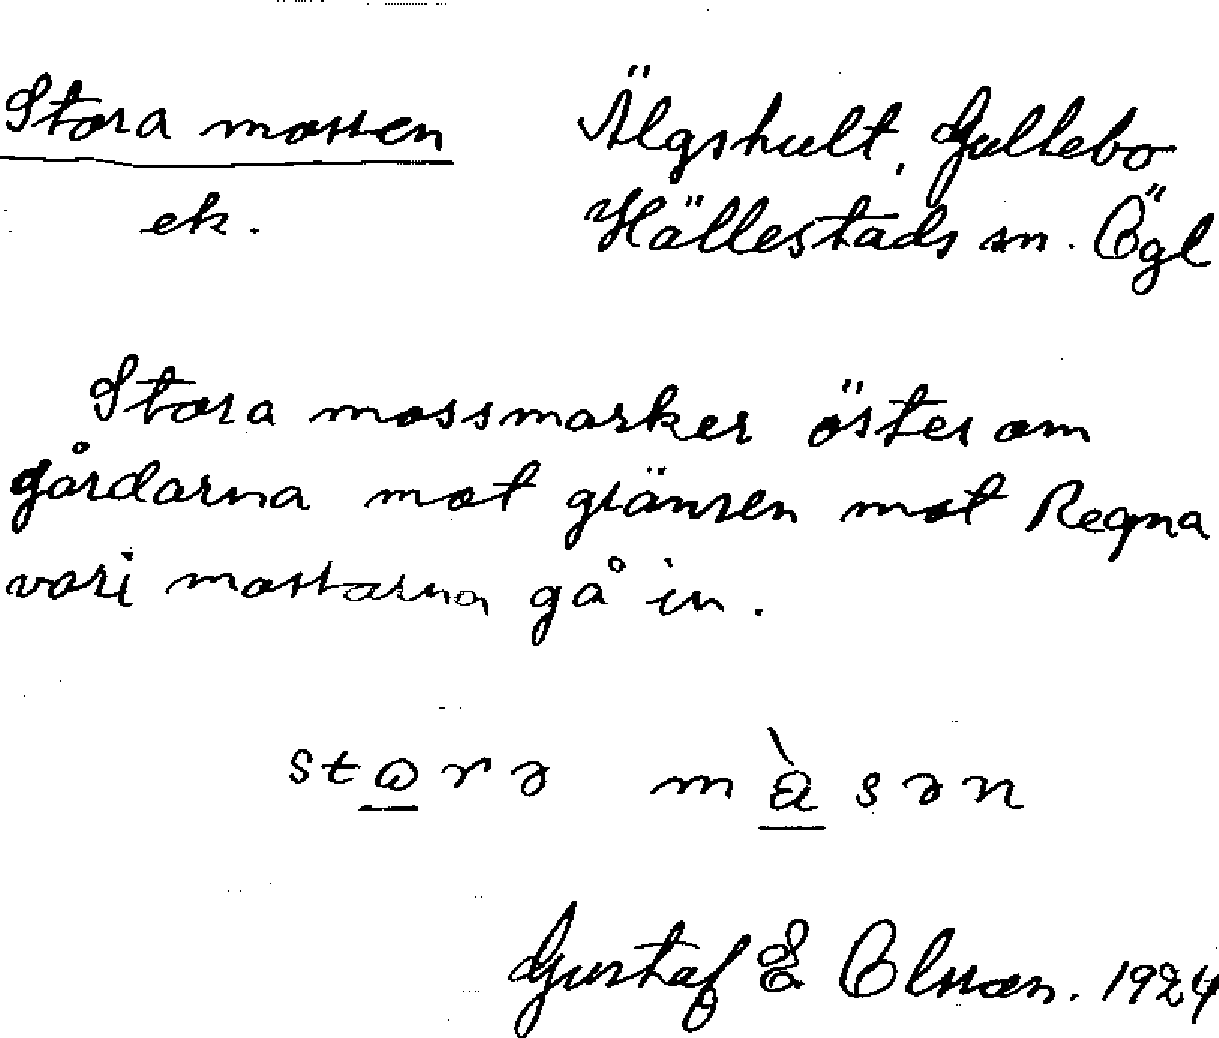 Stora mossen
Älgshult, Gullebo
ek.
Hällestads sn. Ögl
Stora mossmarker öster om
gårdarna mot gränsen mot Regna
vari mossarna gå in.
Gustaf E Olsson. 1924